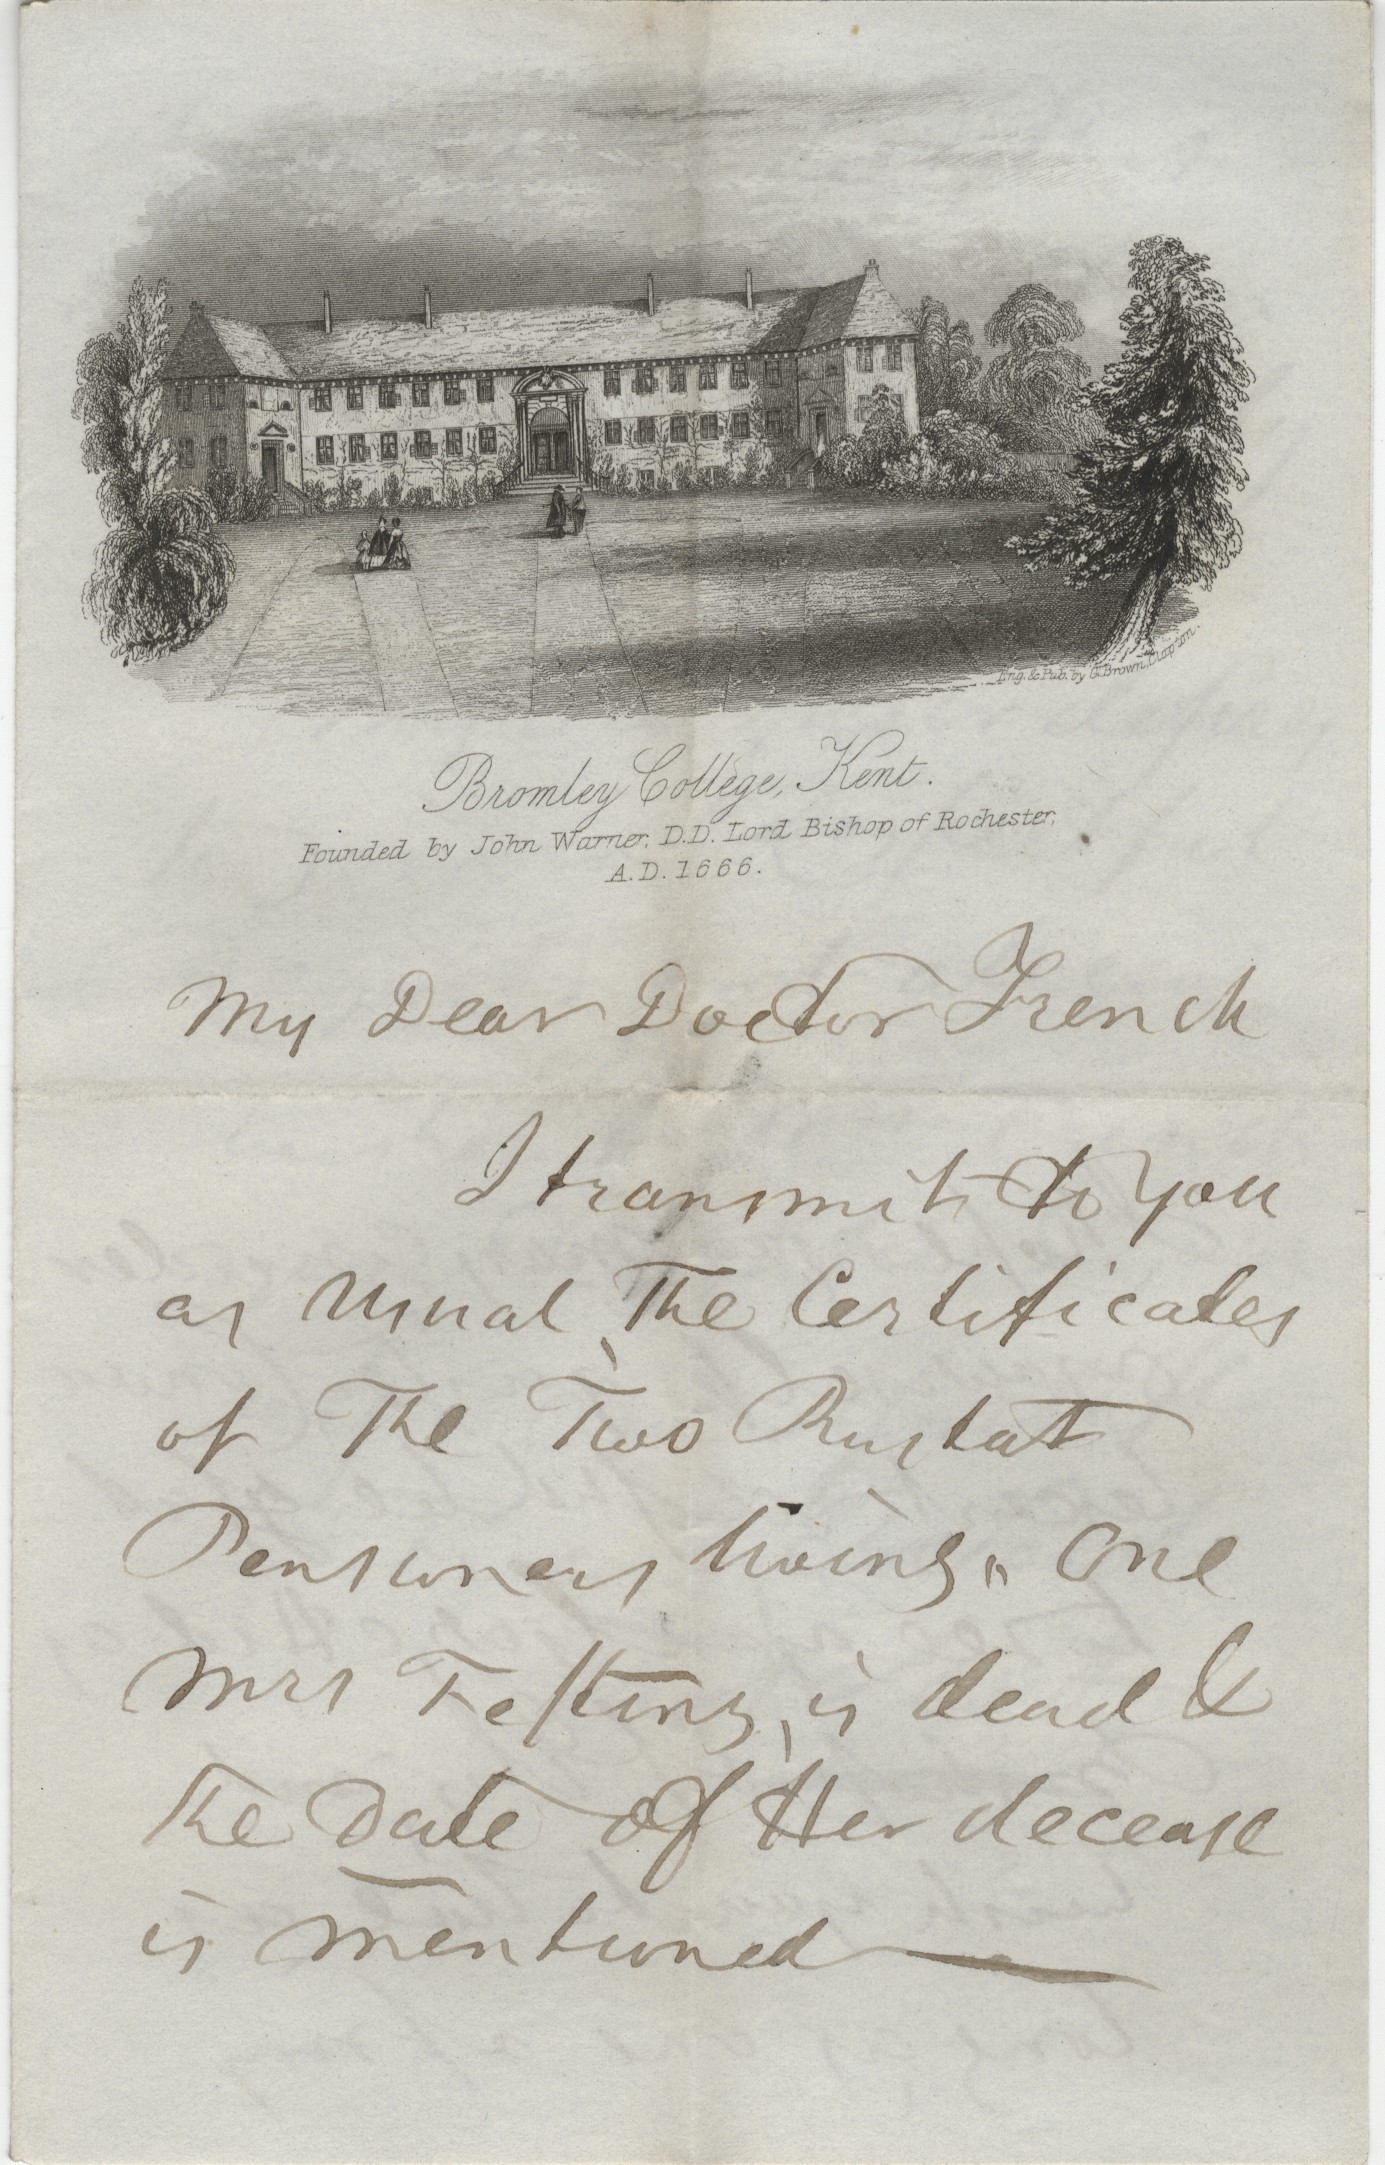 Eng. & Pub. by G. Brown, Clapton.
Bromley College, Kent.
Founded by John Warner, D.D. Lord Bishop of Rochester,
A.D. 1666.
My Dear Doctor French
I transmit to you
as usual, The Certificates
of The Two Rustat
Pensioners living, One
Mrs Festing, is dead &
The Date of Her decease
is mentioned —